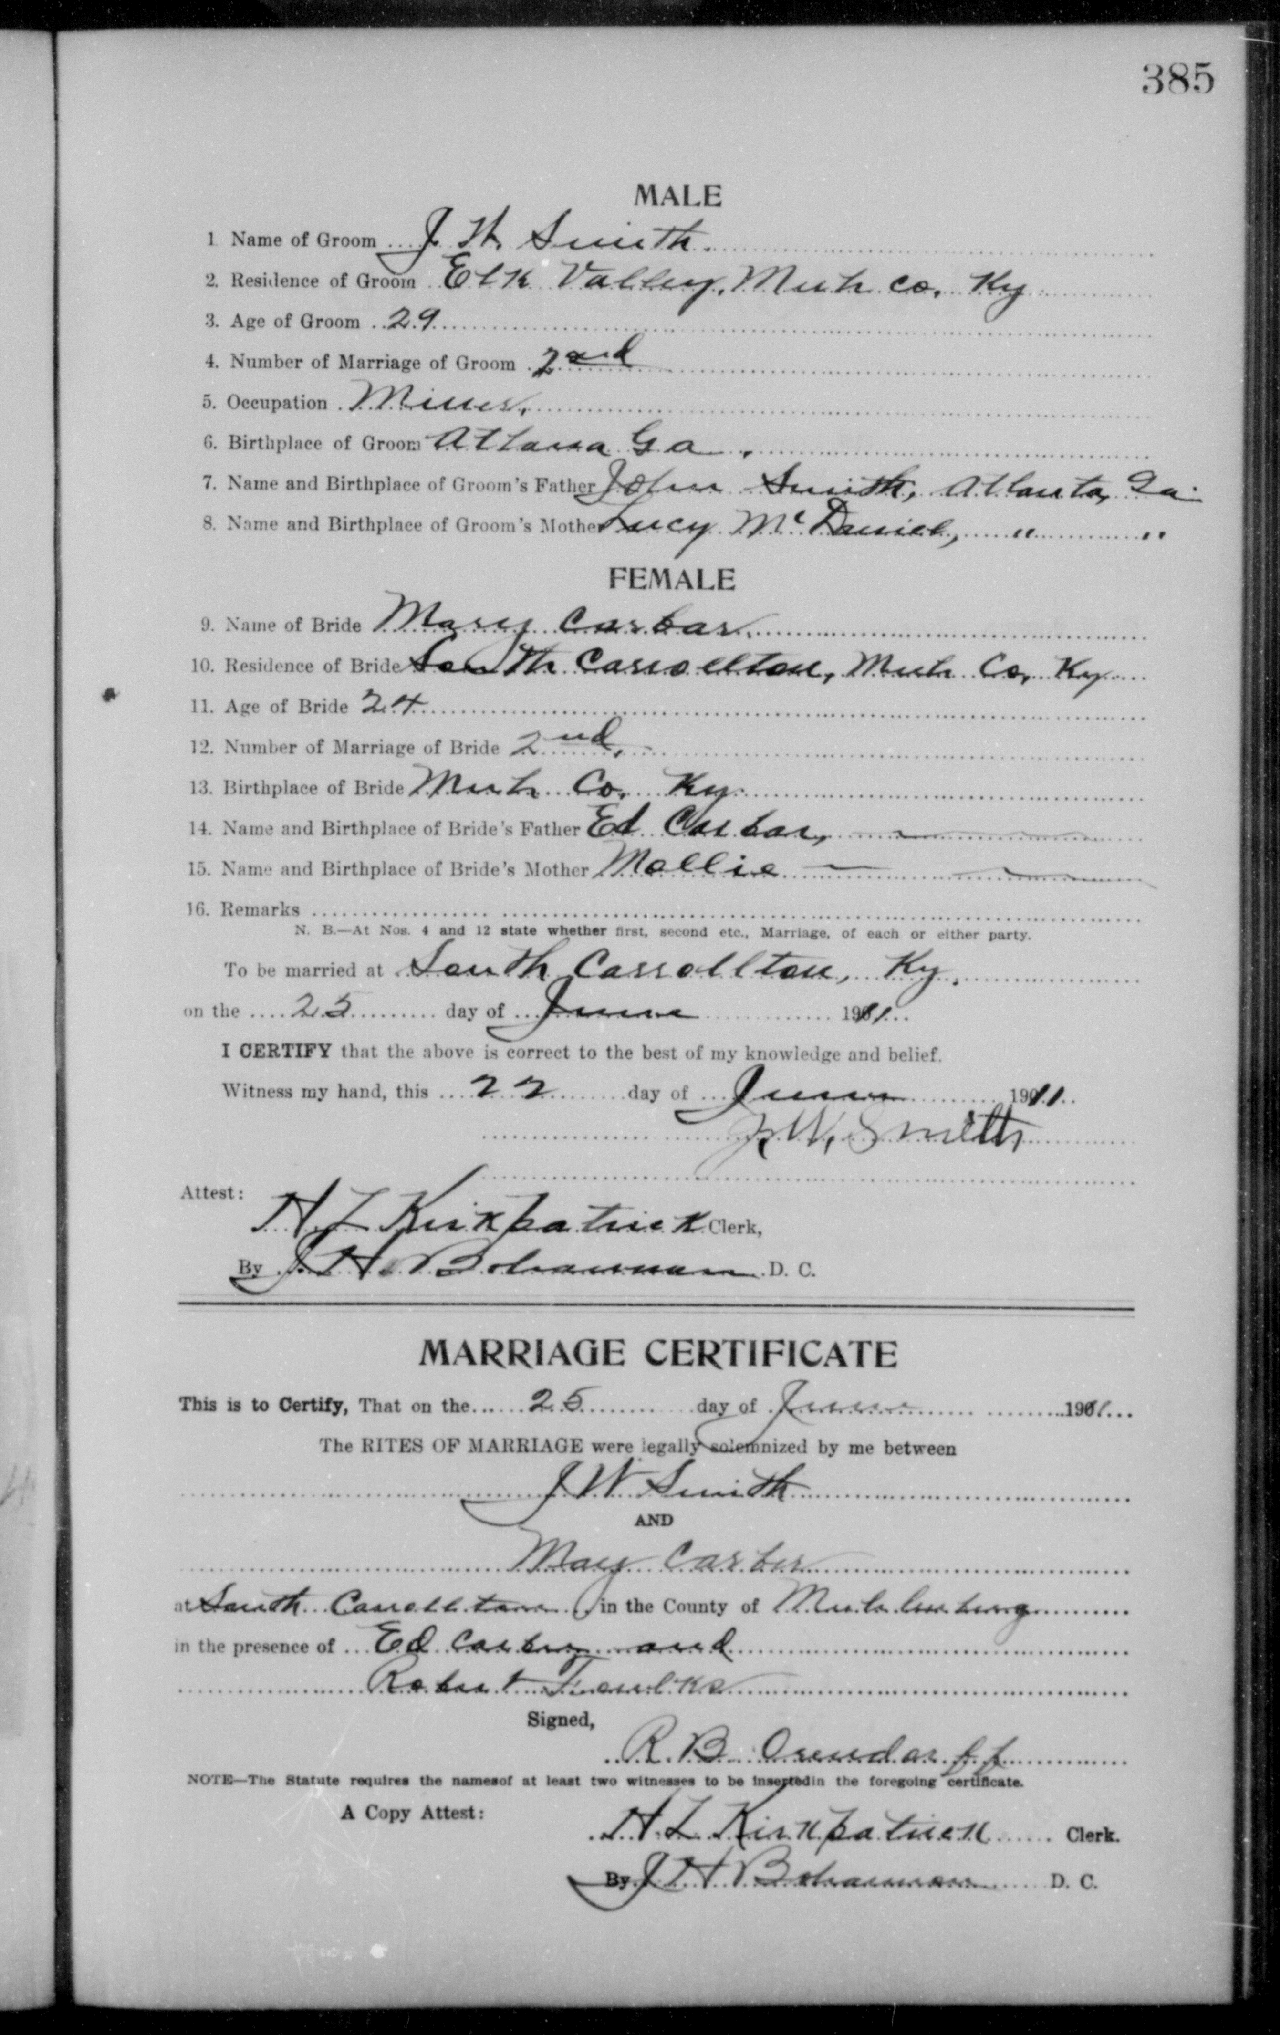 385
MALE
1 Name of Groom J. W. Smith.
2. Residence of Groom Elk Valley, Muh Co, Ky
3. Age of Groom 29
4. Number of Marriage of Groom 2nd
5. Occupation Miner.
6. Birthplace of Groom Atlana Ga.
7. Name and Birthplace of Groom's Father John Smith, Atlanta, Ga.
8. Name and Birthplace of Groom's Mother Lucy McDaniel, " "
FEMALE
9. Name of Bride Mary Carbar
10. Residence of Bride South Carrollton, Muh Co, Ky
11. Age of Bride 24
12. Number of Marriage of Bride 2nd.
13. Birthplace of Bride Muh Co. Ky.
14. Name and Birthplace of Bride's Father Ed Carbar,
15. Name and Birthplace of Bride's Mother Mollie —
16. Remarks
N. B.—At Nos. 4 and 12 state whether first, second etc., Marriage, of each or either party.
To be married at South Carrollton, Ky.
on the 25 day of June 1911
I CERTIFY that the above is correct to the best of my knowledge and belief.
Witness my hand, this 22 day of June 1911
J. W. Smith
Attest:
H. L Kirkpatrick Clerk,
By J. H. Bohannan D. C.
MARRIAGE CERTIFICATE
This is to Certify, That on the 25 day of June 1911
The RITES OF MARRIAGE were legally solemnized by me between
J W Smith
AND
May Carber
at South Carrollton in the County of Muhlenburg
in the presence of Ed Carber and
Robert Foulks
Signed,
R. B Orendorff
NOTE—The Statute requires the namesof at least two witnesses to be insertedin the foregoing certificate.
A Copy Attest:
H. L Kirkpatrick Clerk.
By J H Bohannan D. C.